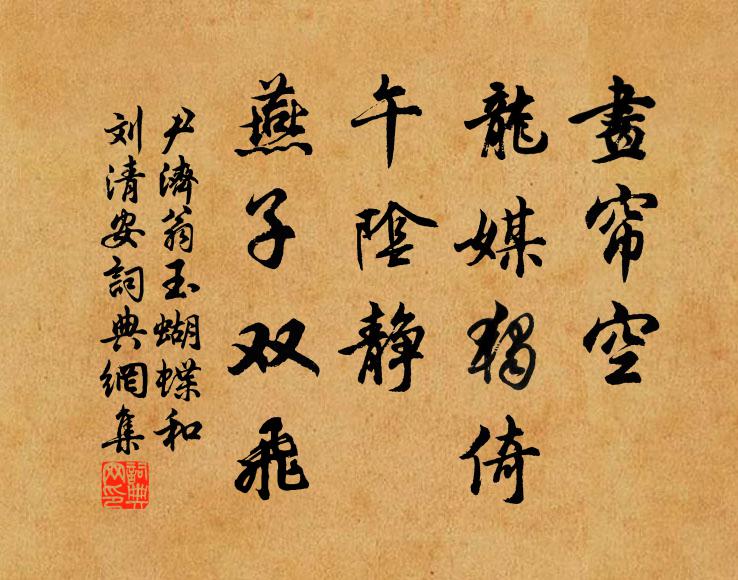 畫帘空
龍媒獨倚
午陰静
燕子双飛
尹濟翁玉蝴蝶和
刘清安詞典網集
詞典网印